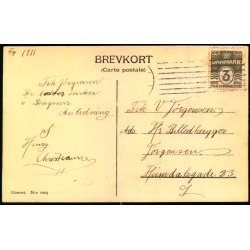 1911
BREVKORT
(Carte postale)
DANMARK
3
Frk Jørgensen
i Dagens
Anledning
af
Henry
Christiansen
Frk V Jørgensen
Adr Hr Billedhugger
Jørgensen
Heimdalsgade 33
Eneret.